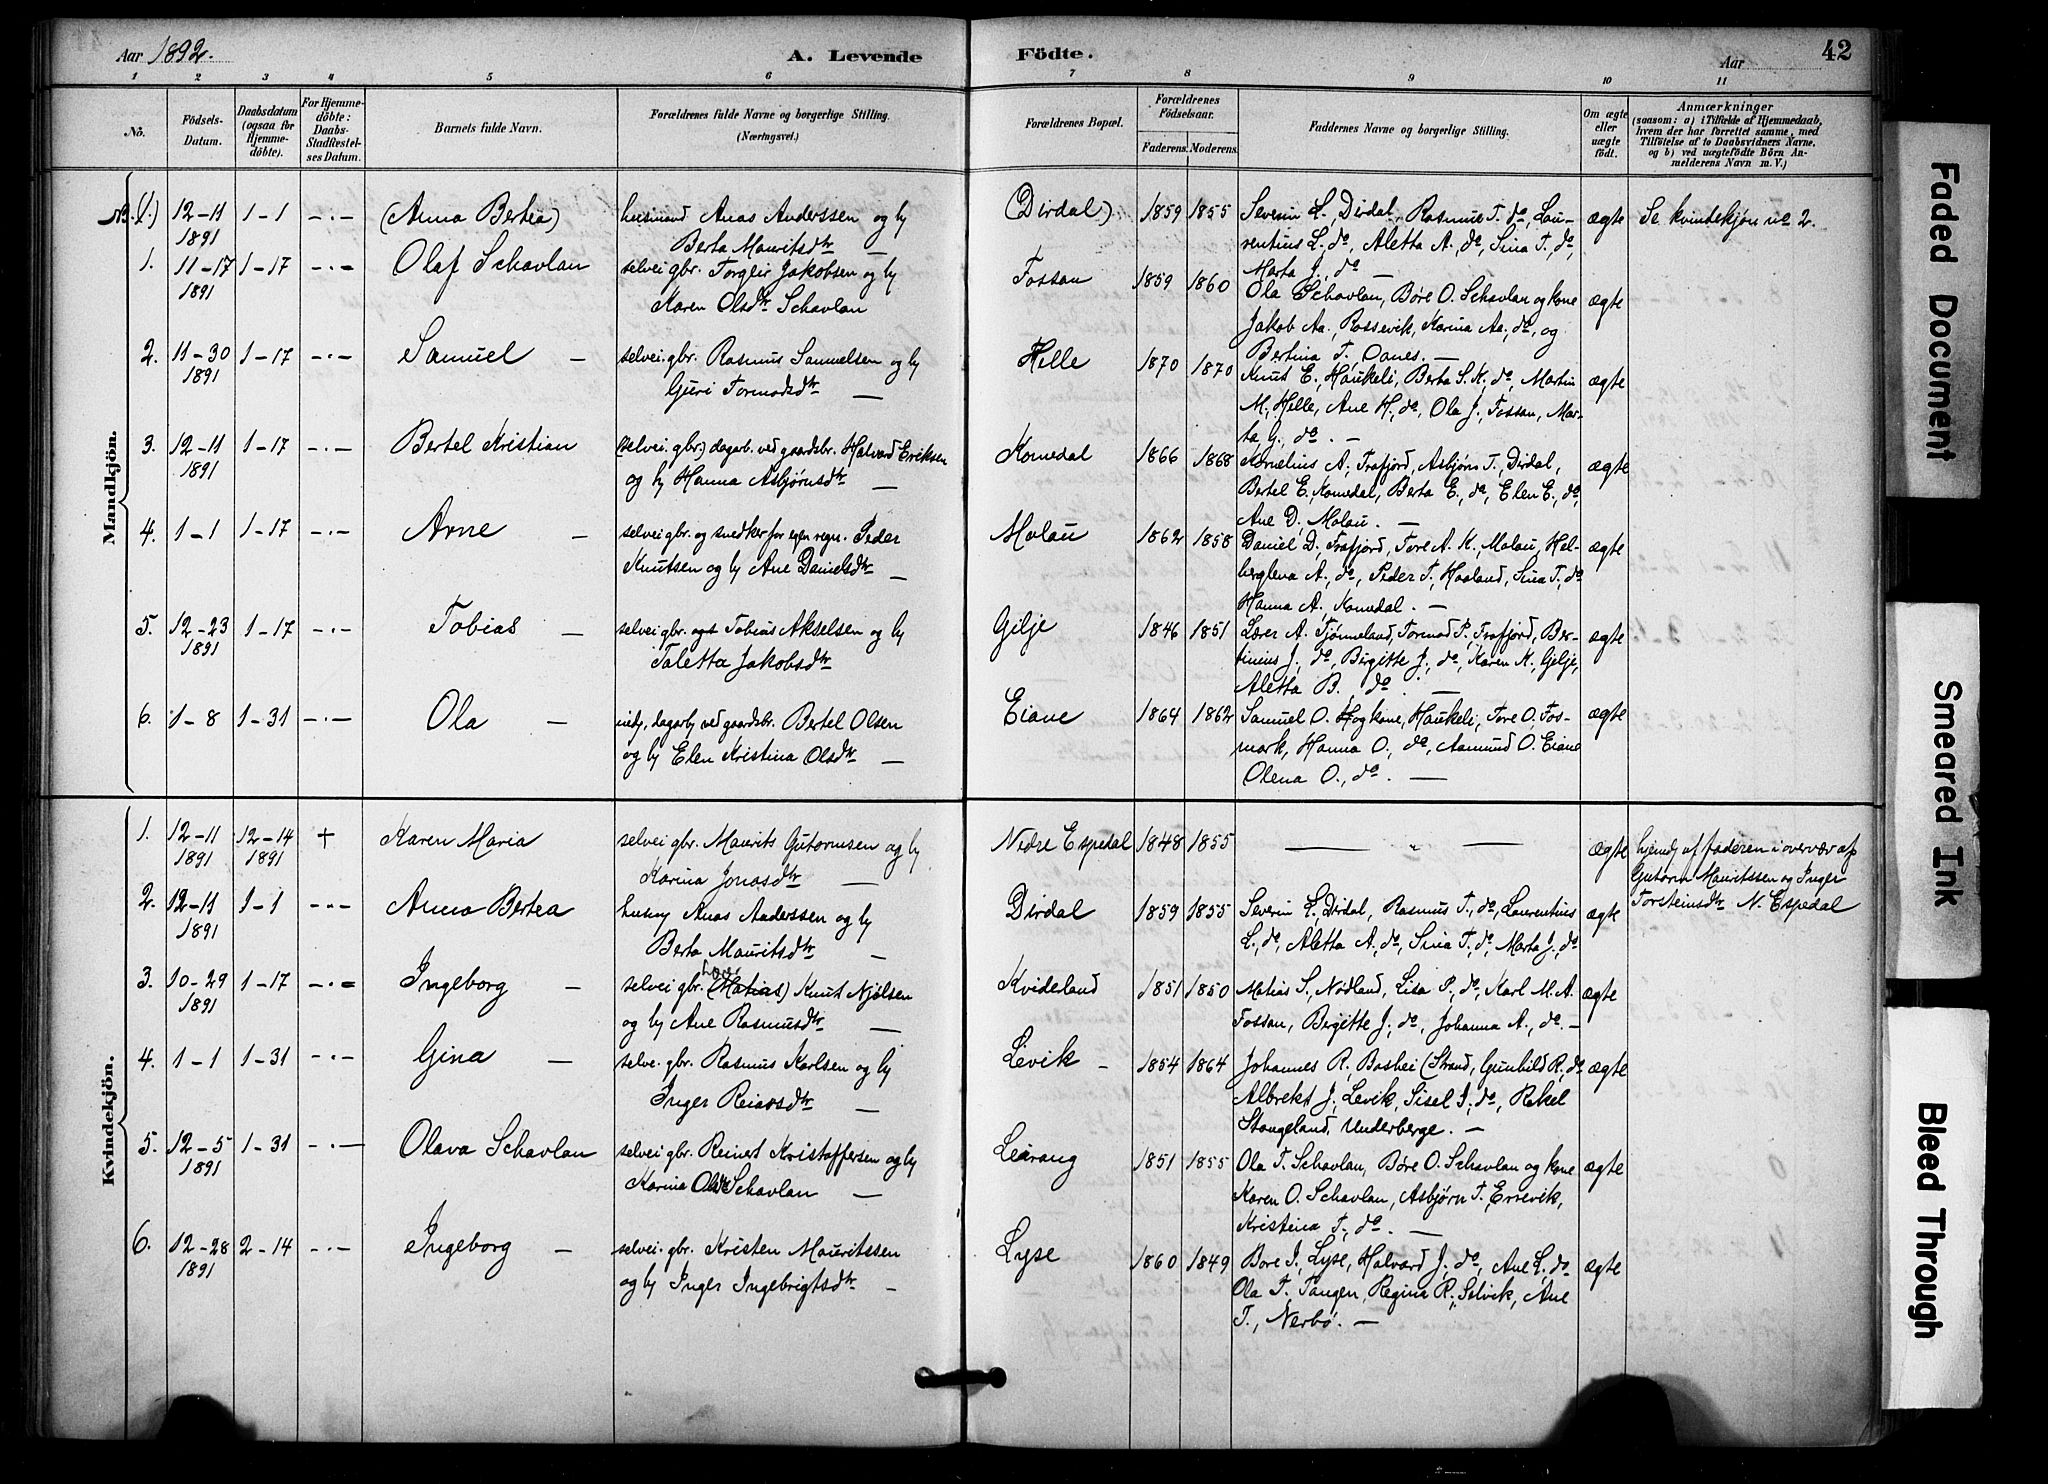 Aar 1892.
A. Levende
Födte.
Aar
42
1 2 3 4 5 6 7 8 9 10 11
Nö.
Födsels-
Datum.
Daabsdatum
(ogsaa for
Hjemme-
döbte).
For Hjemme-
döbte:
Daabs-
Stadfæstel-
ses Datum.
Barnets fulde Navn.
Forældrenes fulde Navne og borgerlige Stilling.
(Næringsvei.)
Forældrenes Bopæl.
Forældrenes
Födselsaar.
Faderens. Moderens.
Faddernes Navne og borgerlige Stilling.
Om ægte
eller
uægte
födt.
Anmærkninger
(saasom: a) i Tilfælde af Hjemmedaab,
hvem der har forrettet samme, med
Tilföielse af to Daabsvidners Navne,
og b) ved uægtefödte Börn An-
melderens Navn m. V.)
Mandkjön.
NB. (1.) 12-11 1891 1-1 -.- (Anna Bertea) husmand Anas Anderssen og h Berta Mauritsdtr — (Dirdal) 1859 1855 Severin L., Dirdal, Rasmus T. do, Lau-
rentius L. do, Aletta A., do, Sina T., do,
Marta J., do — ægte Se kvindekjøn no 2.
1. 11-17 1891 1-17 -.- Olaf Schavlan selvei. gbr. Torgeir Jakobsen og h
Karen Olsdtr Schavlan Fossan 1859 1860 Ola Schavlan, Børe O. Schavlan og kone
Jakob Aa., Rossevik, Karina Aa., do, og
Bertina T. Oanes. — ægte
2. 11-30 1891 1-17 -.- Samuel — selvei. gbr. Rasmus Samuelsen og h
Guri Tormodsdtr — Helle 1870 1870 Knut E., Haukeli, Berta S. K., do, Martin
M., Helle, Ane H., do, Ola J., Fossan, Mar-
ta G., do. — ægte
3. 12-11 1891 1-17 -.- Bertel Kristian (selvei gbr.) dagarb. ved gaardsbr. Halvard Eriksen
og h Hanna Asbjørnsdtr — Komedal 1866 1868 Kornelius A., Frafjord, Asbjørn T., Dirdal,
Bertel E. Komedal, Berta E., do, Elen E., do,
Ane D. Molau. — ægte
4. 1-1 1-17 -.- Arne — selvei gbr. og snedker for egen regn. Peder
Knutsen og h Ane Danielsdtr — Molau 1862 1858 Daniel D., Frafjord, Tore A. K., Molau, Hel-
ga A., do, Peder T., Haaland, Sina T., do
Hanna A. Komedal. — ægte
5. 12-23 1891 1-17 -.- Tobias — selvei gbr. Tobias Akselsen og h
Taletta Jakobsdtr Gilje 1846 1851 Lærer A. Tjønneland, Tormod P., Frafjord, Ber-
tinius J., do, Birgitte J., do, Karen K., Gilje,
Aletta B. do. — ægte
6. 1-8 1-31 -.- Ola — dagarb ved gaardsbr. Bertel Olsen
og h Elen Kristina Olsdtr — Eiane 1864 1862 Samuel O. H og kone, Haukeli, Tore O. Fos-
mark, Hanna O., do, Aamund O. Eiane
Olena O., do. — ægte
Kvindekjön.
1. 12-11 1891 12-14 1891 + Karen Maria selvei gbr. Maurits Gutormsen og h
Karina Jonasdtr — Nedre Espedal 1848 1855 — „ — ægte hjemdg af faderen i overvær af
Gutorm Mauritssen og Inger
Torsteinsdtr N. Espedal
2. 12-11 1891 1-1 -.- Anna Bertea husmg Anas Anderssen og h
Berta Mauritsdtr — Dirdal 1859 1855 Severin L., Dirdal, Rasmus T., do, Laurentius
L., do, Aletta A., do, Sina T., do, Marta J., do ægte
3. 10-29 1891 1-17 -.- Ingeborg — selvei gbr. (Matias) Knut Njølsen
og h Ane Rasmusdtr — Kvideland 1851 1850 Matias S., Nødland, Lisa P., do, Karl M. A.
Fossan, Birgitte J., do, Johanna A., do. — ægte
4. 1-1 1-31 -.- Gina — selvei. gbr. Rasmus Karlsen og h
Inger Reiarsdtr — Levik – 1854 1864 Johannes R., Bashei (Strand, Gunhild R., do
Albrekt J., Levik, Sisel J., do, Rakel
Stangeland, Underberge. — ægte
5. 12-5 1891 1-31 -.- Olava Schavlan selvei gbr. Reinert Kristoffersen og h
Karina Olsdtr Schavlan — Lerang 1851 1855 Ola T. Schavlan, Børe O. Schavlan og kone
Karen O. Schavlan, Asbjørn T. Erevik,
Kristina T., do. — ægte
6. 12-28 1891 2-14 -.- Ingeborg — selvei. gbr. Kristen Mauritssen
og h Inger Ingebrigtsdtr – Lyse 1860 1849 Bore J., Lyse, Halvard J., do, Ane L., do
Ola T. Tangen, Regina R., Selvik, Ane
T., Nerbø. — ægte
Faded Document
Smeared Ink
Bleed Through